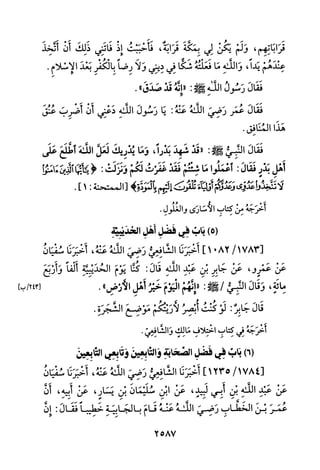 قَرَابَاتِهِم، وَلَمْ يَكُنْ لِي بِمَكَّةَ قَرَابَةٌ، فَأَحْبَبْتُ إِذْ فَاتَنِي ذَلِكَ أَنْ أَتَّخِذَ
عِنْدَهُمْ يَداً، وَاللَّهِ مَا فَعَلْتُهُ شَكًّا فِي دِينِي وَلَا رِضاً بِالْكُفْرِ بَعْدَ الإِسْلَامِ.
فَقَالَ رَسُولُ اللَّهِ ﷺ: «إِنَّهُ قَدْ صَدَقَ».
فَقَالَ عُمَرُ رَضِيَ اللَّهُ عَنْهُ: يَا رَسُولَ اللَّهِ دَعْنِي أَنْ أَضْرِبَ عُنُقَ
هَذَا المُنَافِقِ.
فَقَالَ النَّبِيُّ ﷺ: «قَدْ شَهِدَ بَدْراً، وَمَا يُدْرِيكَ لَعَلَّ اللَّهَ اطَّلَعَ عَلَى
أَهْلِ بَدْرٍ فَقَالَ: اعْمَلُوا مَا شِئْتُمْ فَقَدْ غَفَرْتُ لَكُمْ» وَنَزَلَتْ: ﴿يَا أَيُّهَا الَّذِينَ آمَنُوا
لَا تَتَّخِذُوا عَدُوِّي وَعَدُوَّكُمْ أَوْلِيَاءَ تُلْقُونَ إِلَيْهِم بِالْمَوَدَّةِ﴾ [الممتحنة: ١].
أَخْرَجَهُ مِنْ كِتابِ الأُسَارَى والغُلُولِ.
(٥) بَابٌ فِي فَضْلِ أَهْلِ الحُدَيْبِيَةِ
[١٧٨٣/ ١٠٨٢] أَخْبَرَنَا الشَّافِعِيُّ رَضِيَ اللَّهُ عَنْهُ، أَخْبَرَنَا سُفْيَانُ
عَنْ عَمْرٍو، عَنْ جَابِرِ بْنِ عَبْدِ اللَّهِ قَالَ: كُنَّا يَوْمَ الحُدَيْبِيَةِ أَلْفاً وَأَرْبَعَ
مِائَةٍ، وَقَالَ النَّبِيُّ ﷺ: «أَنْتُمُ الْيَوْمَ خَيْرُ أَهْلِ الأَرْضِ». [٢٤٣/ب]
قَالَ جَابِرٌ: لَوْ كُنْتُ أُبْصِرُ لأَرَيْتُكُمْ مَوْضِعَ الشَّجَرَةِ.
أَخْرَجَهُ فِي كِتابِ اخْتِلافِ مَالِكٍ وَالشَّافِعِيِّ.
(٦) بَابٌ فِي فَضْلِ الصَّحَابَةِ وَالتَّابِعِينَ وَتَابِعِي التَّابِعِينَ
[١٧٨٤/ ١٢٣٥] أَخْبَرَنَا الشَّافِعِيُّ رَضِيَ اللَّهُ عَنْهُ، أَخْبَرَنَا سُفْيَانُ
عَنْ عَبْدِ اللَّهِ بْنِ أَبِي لَبِيدٍ، عَنِ ابْنِ سُلَيْمَانَ بْنِ يَسَارٍ، عَنْ أَبِيهِ، أَنَّ
عُمَرَ بْنَ الخَطَّابِ رَضِيَ اللَّهُ عَنْهُ قَامَ بالجَابِيَةِ خَطِيباً فَقَالَ: إِنَّ
٢٥٨٧